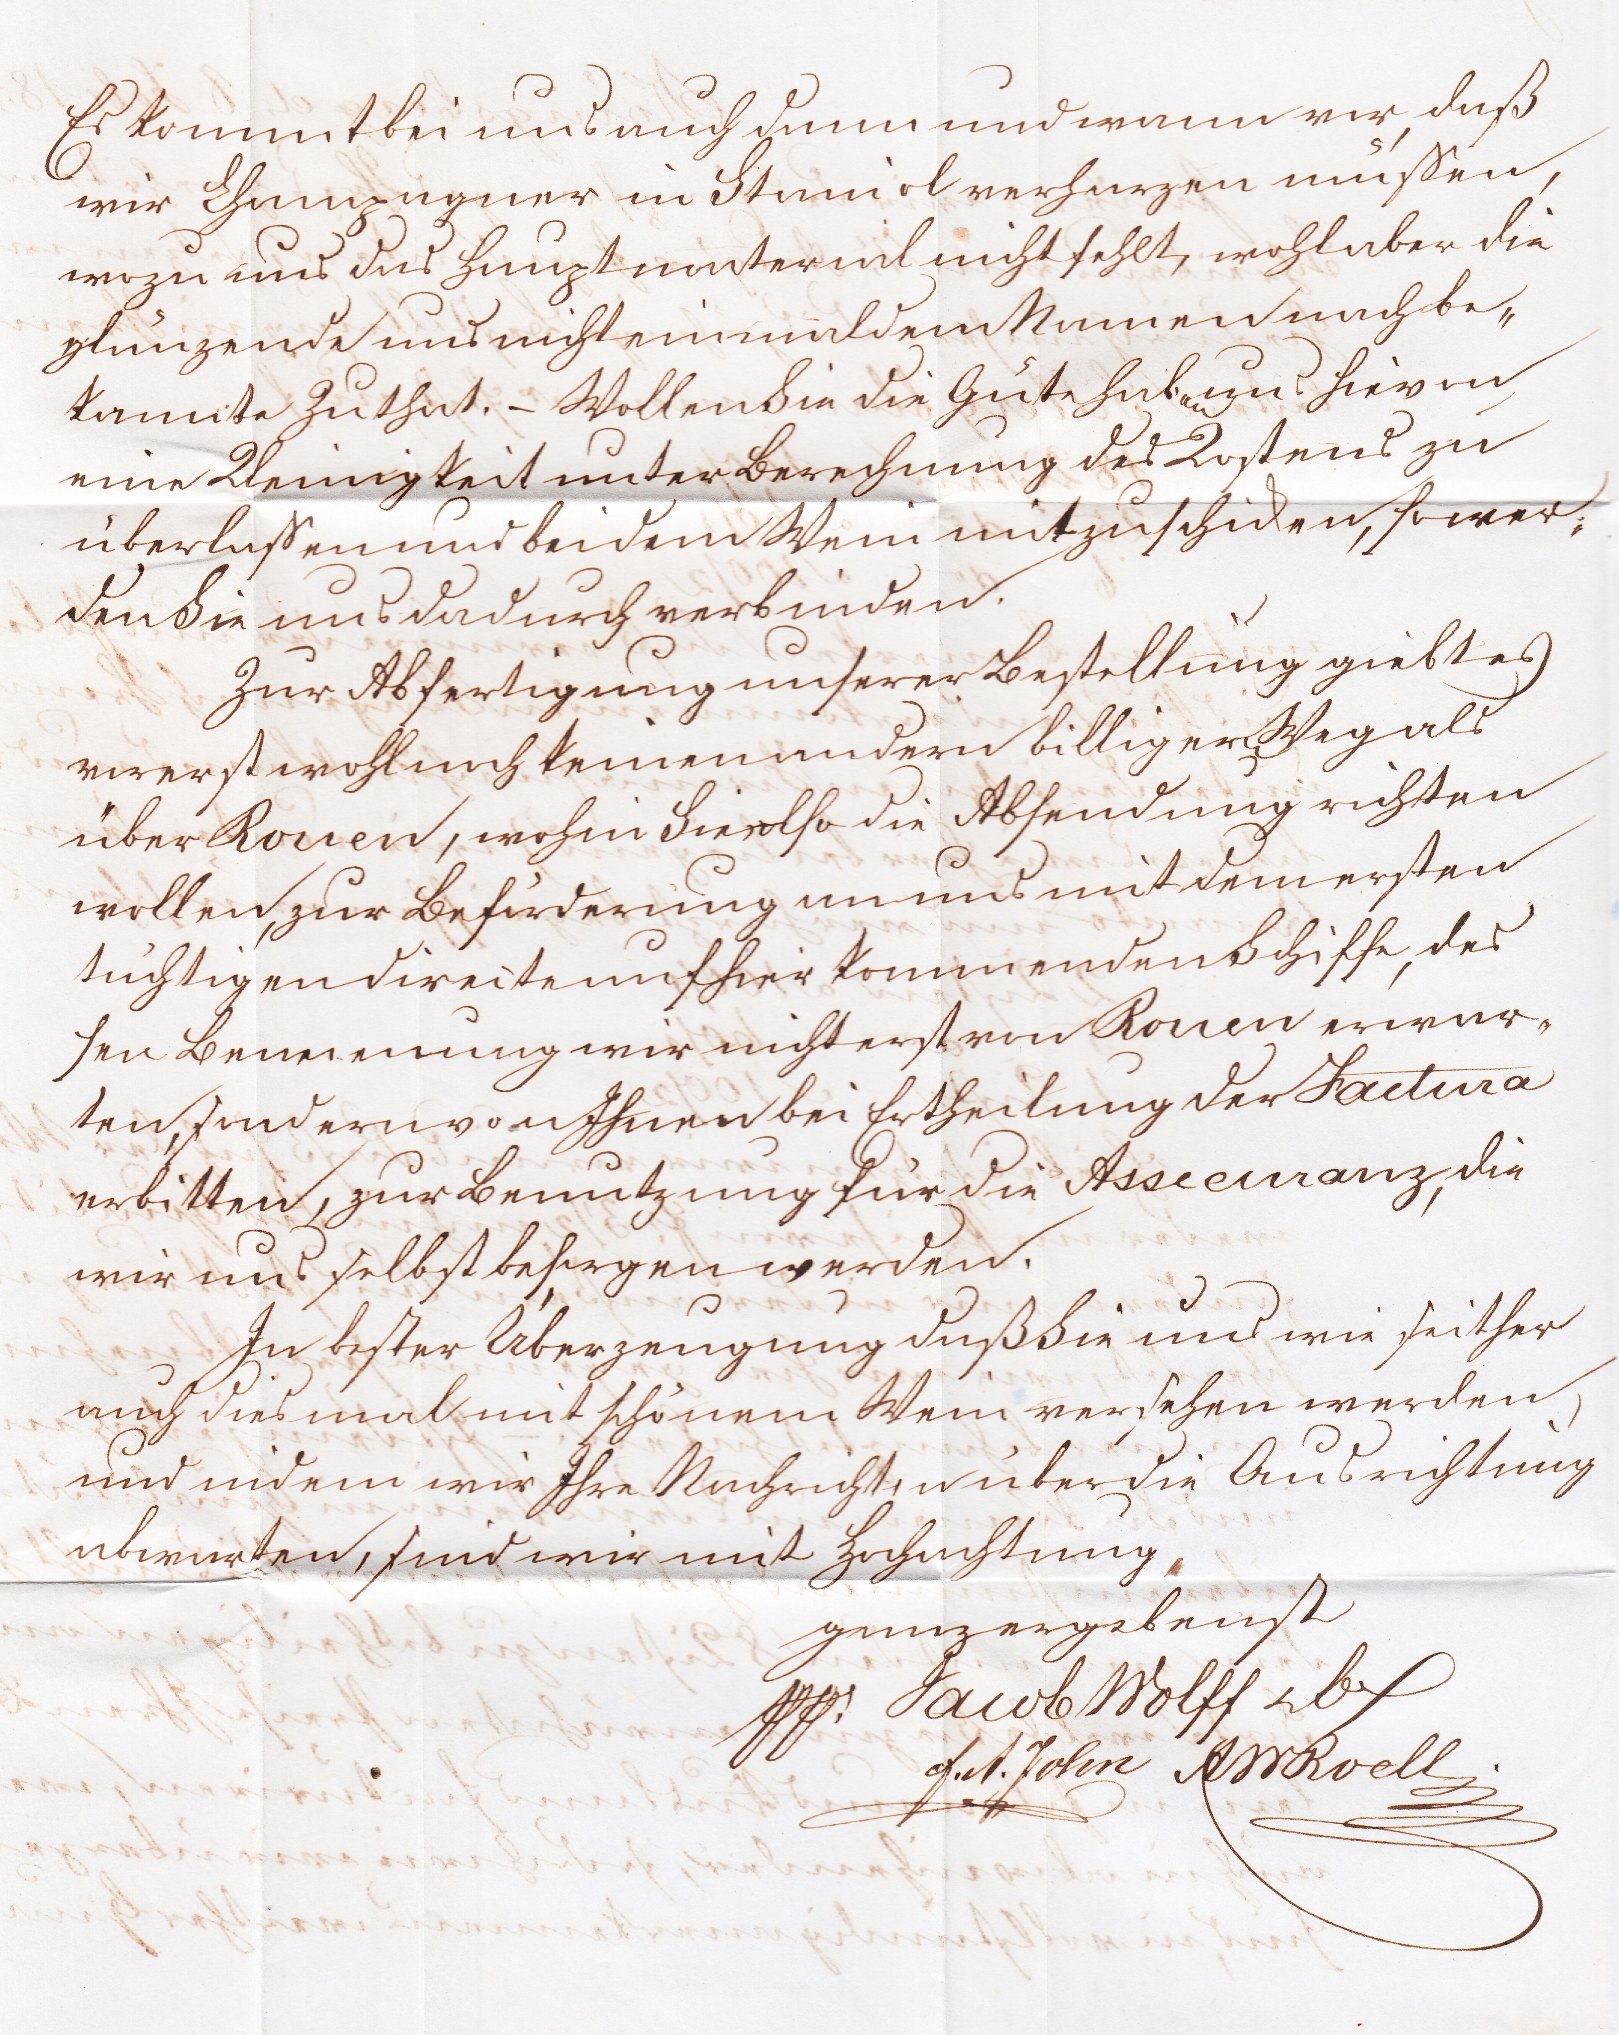 Es kommt bei uns auch dann und wann vor, daß
wir Champagner in Staniol verharzen müssen,
wozu uns das Hauptmaterial nicht fehlt, wohl aber die
glänzende uns nicht einmal dem Namen nach be„
kannte Zuthat. – Wollen Sie die Güte haben uns hievon
eine Kleinigkeit unter Berechnung des Kostens zu
überlassen und bei dem Wein mitzuschicken, so wer„
den Sie uns dadurch verbinden.
Zur Abfertigung unserer Bestellung giebt es
vorerst wohl noch keinen andern billigern Weg als
über Rouen, wohin Sie also die Absendung richten
wollen, zur Beförderung an uns mit dem ersten
tüchtigen direite auf hier kommenden Schiffe, des
sen Benennung wir nicht erst von Rouen erwar„
ten, sondern von Ihnen bei Ertheilung der Factura
erbitten, zur Benutzung für die Assecuranz, die
wir uns selbst besorgen werden.
In bester Überzeugung daß Sie uns wie seither
auch diesmal mit schönem Wein versehen werden,
und indem wir Ihre Nachrichten über die Ausrichtung
abwarten, sind wir mit Hochachtung
ganz ergebenst
ppp: Jacob Wolff & Co
F. A. John AWRoell